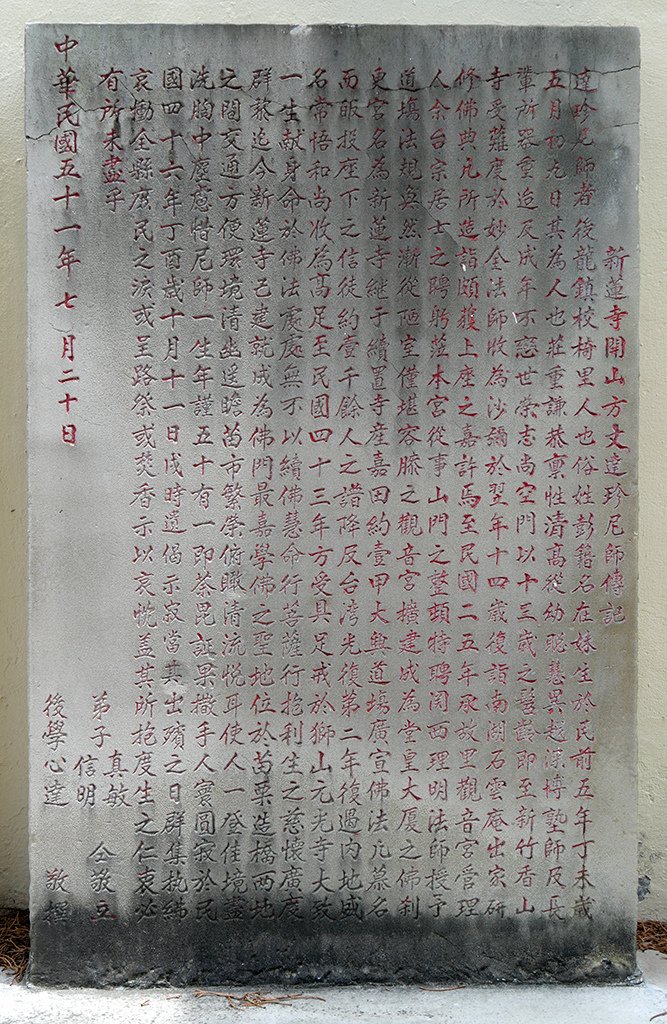 新蓮寺開山方丈達珍尼師傳記
達珍尼師者後龍鎮校椅里人也俗姓彭籍名在妹生於民前五年丁未歲
五月初九日其為人也莊重謙恭稟性清高從幼聪慧異超深博塾師及長
輩所器重造及成年不戀世榮志尚空門以十三歲之髫齡即至新竹香山
寺受薙度於妙全法師收為沙彌於翌年十四歲復詣南湖石雲庵出家研
修佛典凡所造詣頗獲上座之嘉許焉至民國二五年承故里觀音宮管理
人余台宗居士之聘躬蒞本宮從事山門之整頓特聘関西理明法師授予
道場法規與然漸從陋室僅堪容膝之觀音宮擴建成為堂皇大厦之佛刹
更宮名為新蓮寺継于續置寺産嘉田約壹甲大興道場廣宣佛法凡慕名
而皈投座下之信徒約壹千餘人之譜降及台湾光復第二年復過内地盛
名常悟和尚收為髙足至民國四十三年方受具足戒於獅山元光寺大致
一生献身命於佛法處處無不以續佛慧命行菩薩行抱利生之慈懷廣度
群黎迄今新蓮寺已建就成為佛門最嘉學佛之聖地位於苗栗造橋两地
之間交通方便環境清幽遥瞻苗市繁榮俯瞰清流悦耳使人一登佳境盡
洗胸中塵慮惜尼師一生年謹五十有一即荼毘証果撒手人寰圓寂於民
國四十六年丁酉歲十月十一日戌時遺偈示寂當其出殯之日群集執紼
哀慟全縣庶民之淚或呈路祭或焚香示以哀忱盖其所抱度生之仁衷必
有所未盡乎
弟子 真敏 信明 仝敬立
中華民國五十一年七月二十日
後學心達 敬撰